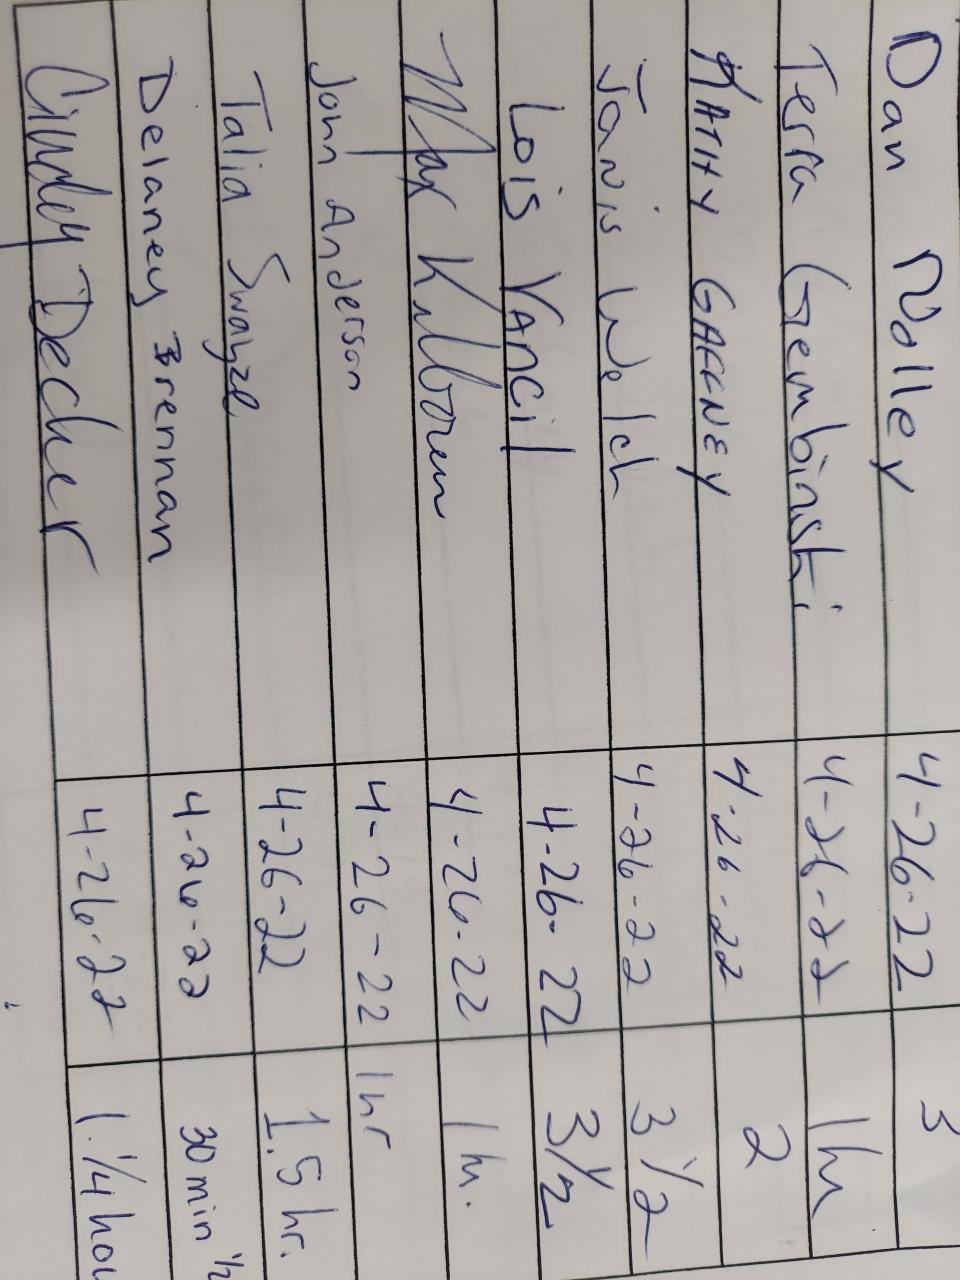 Dan Nolley 4-26-22 3
Terra Gembinski 4-26-22 1 hr
KATHY GAFFNEY 4-26-22 2
Janis Welch 4-26-22 3 1/2
Lois Vancil 4-26-22 3 1/2
Max Kilborn 4-26-22 1 hr.
John Anderson 4-26-22 1 hr
Talia Swayze 4-26-22 1.5 hr.
Delaney Brennan 4-26-22 30 min 1/2
Cindy Decker 4-26-22 1.1/4 hou